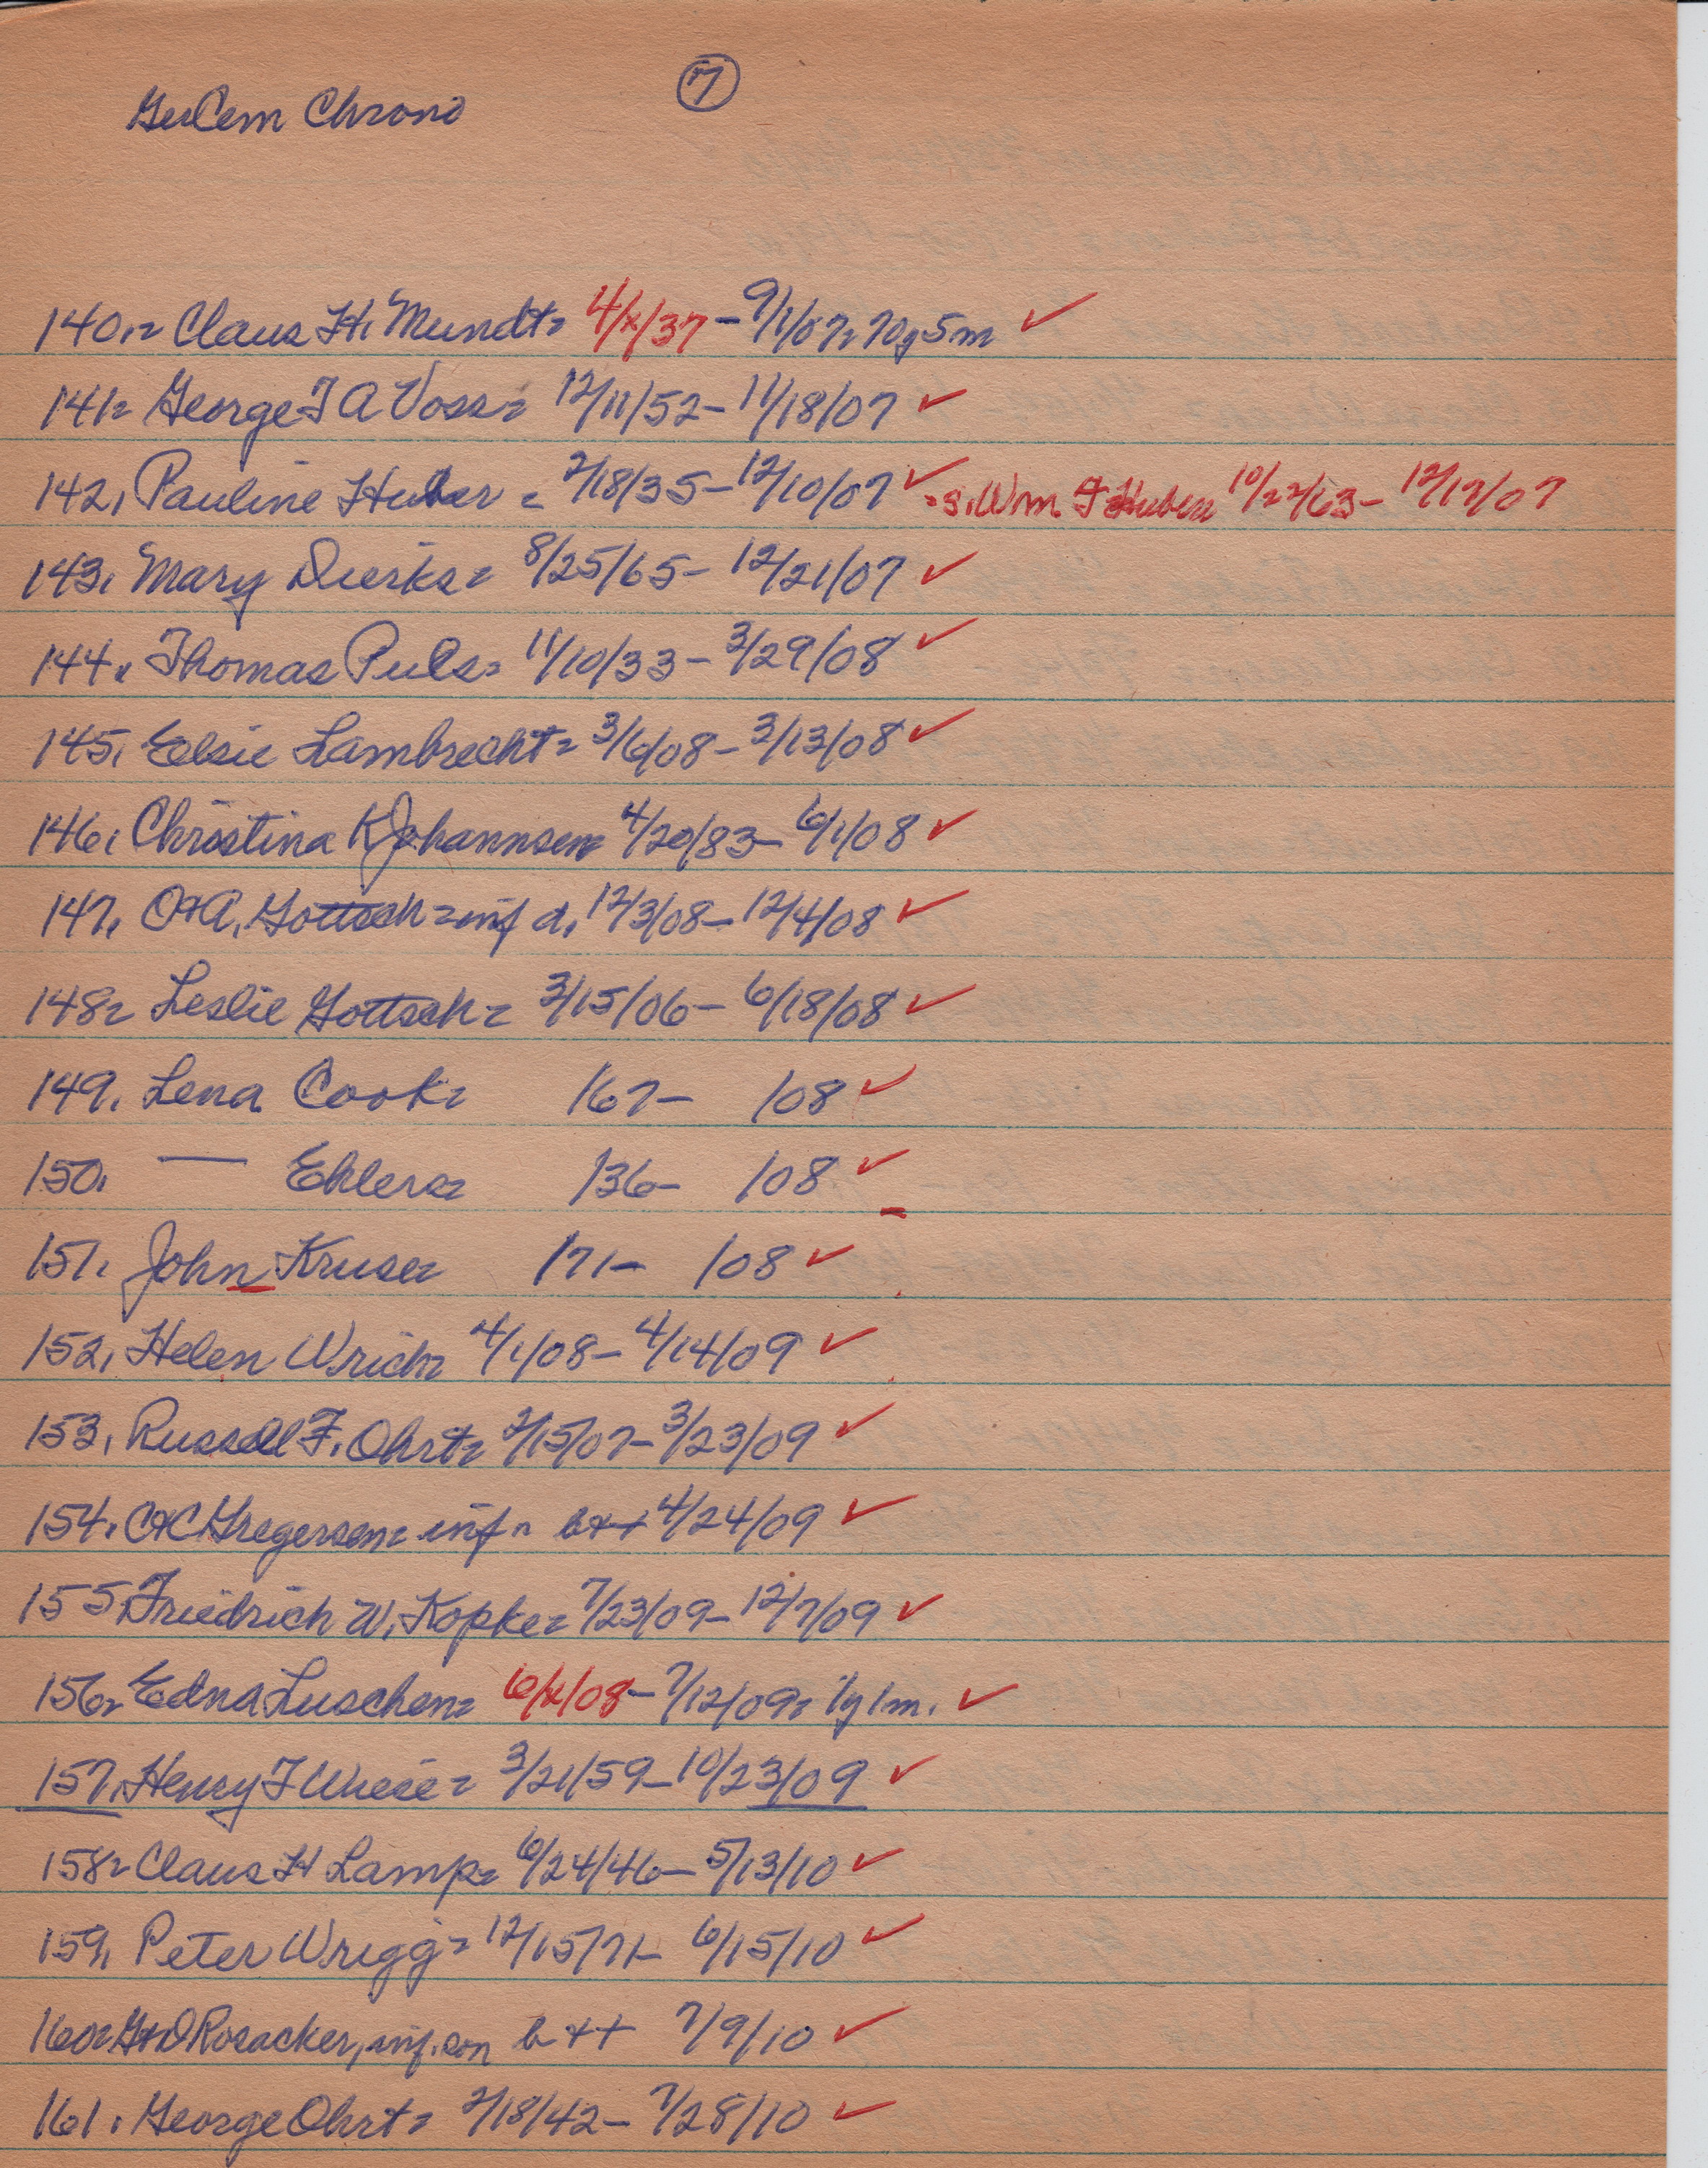 GerCem Chrono 7
140.= Claus H. Mundt= 4/x/37 - 9/1/07= 70y5m ✓
141= George F A Voss= 12/11/52 - 11/18/07 ✓
142. Pauline Huber = 2/18/35 - 12/10/07 ✓ =s. Wm F Huber 10/22/63 - 12/12/07
143. Mary Dierks= 8/25/65 - 12/21/07 ✓
144. Thomas Puls= 11/10/33 - 3/29/08 ✓
145. Elsie Lambrecht= 3/6/08 - 3/13/08 ✓
146. Christina K Johannsen= 4/20/83 - 6/1/08 ✓
147. O+A. Gottsch = inf d. 12/3/08 - 12/4/08 ✓
148= Leslie Gottsch= 3/15/06 - 6/18/08 ✓
149. Lena Cook= /67 - /08 ✓
150. — Ehlers= /36 - /08 ✓
151. John Kruse= /71 - /08 ✓
152. Helen Wrich= 4/1/08 - 4/14/09 ✓
153. Russell F. Ohrt= 2/15/07 - 3/23/09 ✓
154. C+C Gregersen= inf = b++ 4/24/09 ✓
155 Friedrich W. Kopke= 7/23/09 - 12/7/09 ✓
156= Edna Luschen= 6/x/08 - 7/12/09= 1y 1m. ✓
157. Henry F Wiese= 3/21/59 - 10/23/09 ✓
158= Claus H Lamp= 6/24/46 - 5/13/10 ✓
159. Peter Wrigg= 12/15/71 - 6/15/10 ✓
160= G+D Rosacker, inf. son b++ 7/9/10 ✓
161. George Ohrt= 2/18/42 - 7/28/10 ✓